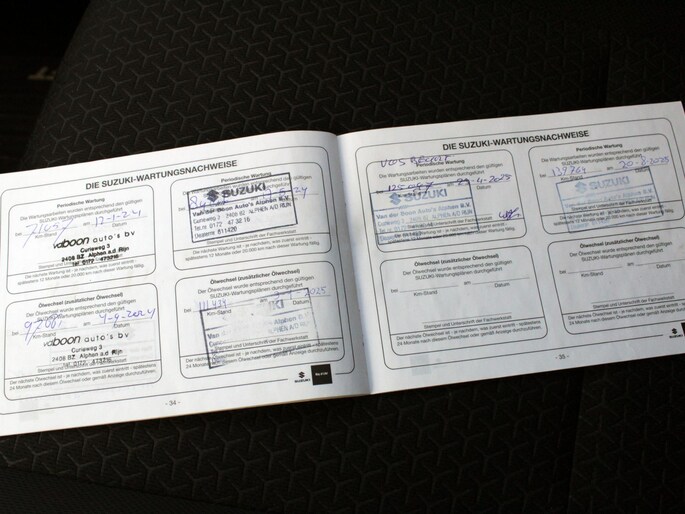 DIE SUZUKI-WARTUNGSNACHWEISE
Periodische Wartung
Die Wartungsarbeiten wurden entsprechend den gültigen
SUZUKI-Wartungsplänen durchgeführt
bei am 17-1-24
Km-Stand Datum
vaboon auto's bv
Curieweg 3
2408 BZ Alphen a.d. Rijn
tel. 0172 - 473216
Stempel und Unterschrift der Fachwerkstatt
Die nächste Wartung ist - je nachdem, was zuerst eintritt -
spätestens 12 Monate oder 20.000 km nach dieser Wartung fällig.
Periodische Wartung
Die Wartungsarbeiten wurden entsprechend den gültigen
SUZUKI-Wartungsplänen durchgeführt
bei
SUZUKI
Van der Boon Auto's Alphen B.V.
Curieweg 3 2408 BZ ALPHEN A/D RIJN
Tel.nr 0172 47 32 16
Dealernr 811420
Stempel und Unterschrift der Fachwerkstatt
Die nächste Wartung ist - je nachdem, was zuerst eintritt -
spätestens 12 Monate oder 20.000 km nach dieser Wartung fällig.
Ölwechsel (zusätzlicher Ölwechsel)
Der Ölwechsel wurde entsprechend den gültigen
SUZUKI-Wartungsplänen durchgeführt
bei am 4-9-2024
Km-Stand Datum
vaboon auto's bv
Curieweg 3
2408 BZ Alphen a.d. Rijn
tel. 0172 - 473216
Stempel und Unterschrift der Fachwerkstatt
Der nächste Ölwechsel ist - je nachdem, was zuerst eintritt - spätestens
24 Monate nach diesem Ölwechsel oder gemäß Anzeige durchzuführen.
Ölwechsel (zusätzlicher Ölwechsel)
Der Ölwechsel wurde entsprechend den gültigen
SUZUKI-Wartungsplänen durchgeführt
bei 111.439 am 2025
Km-Stand Datum
Van
Stempel und Unterschrift der Fachwerkstatt
Der nächste Ölwechsel ist - je nachdem, was zuerst eintritt - spätestens
24 Monate nach diesem Ölwechsel oder gemäß Anzeige durchzuführen.
SUZUKI
- 34 -
DIE SUZUKI-WARTUNGSNACHWEISE
Periodische Wartung
Die Wartungsarbeiten wurden entsprechend den gültigen
SUZUKI-Wartungsplänen durchgeführt
bei am 29-4-2025
Datum
SUZUKI
Van der Boon Auto's Alphen B.V.
Curieweg 3 2408 BZ ALPHEN A/D RIJN
Stempel und Unterschrift der Fachwerkstatt
Die nächste Wartung ist - je nachdem, was zuerst eintritt -
spätestens 12 Monate oder 20.000 km nach dieser Wartung fällig.
Periodische Wartung
Die Wartungsarbeiten wurden entsprechend den gültigen
SUZUKI-Wartungsplänen durchgeführt
bei 137764 am 20-8-2025
Datum
SUZUKI
Stempel und Unterschrift der Fachwerkstatt
Die nächste Wartung ist - je nachdem, was zuerst eintritt -
spätestens 12 Monate oder 20.000 km nach dieser Wartung fällig.
Ölwechsel (zusätzlicher Ölwechsel)
Der Ölwechsel wurde entsprechend den gültigen
SUZUKI-Wartungsplänen durchgeführt
bei am
Km-Stand Datum
Stempel und Unterschrift der Fachwerkstatt
Der nächste Ölwechsel ist - je nachdem, was zuerst eintritt - spätestens
24 Monate nach diesem Ölwechsel oder gemäß Anzeige durchzuführen.
Ölwechsel (zusätzlicher Ölwechsel)
Der Ölwechsel wurde entsprechend den gültigen
SUZUKI-Wartungsplänen durchgeführt
bei am
Km-Stand Datum
Stempel und Unterschrift der Fachwerkstatt
Der nächste Ölwechsel ist - je nachdem, was zuerst eintritt - spätestens
24 Monate nach diesem Ölwechsel oder gemäß Anzeige durchzuführen.
- 35 -